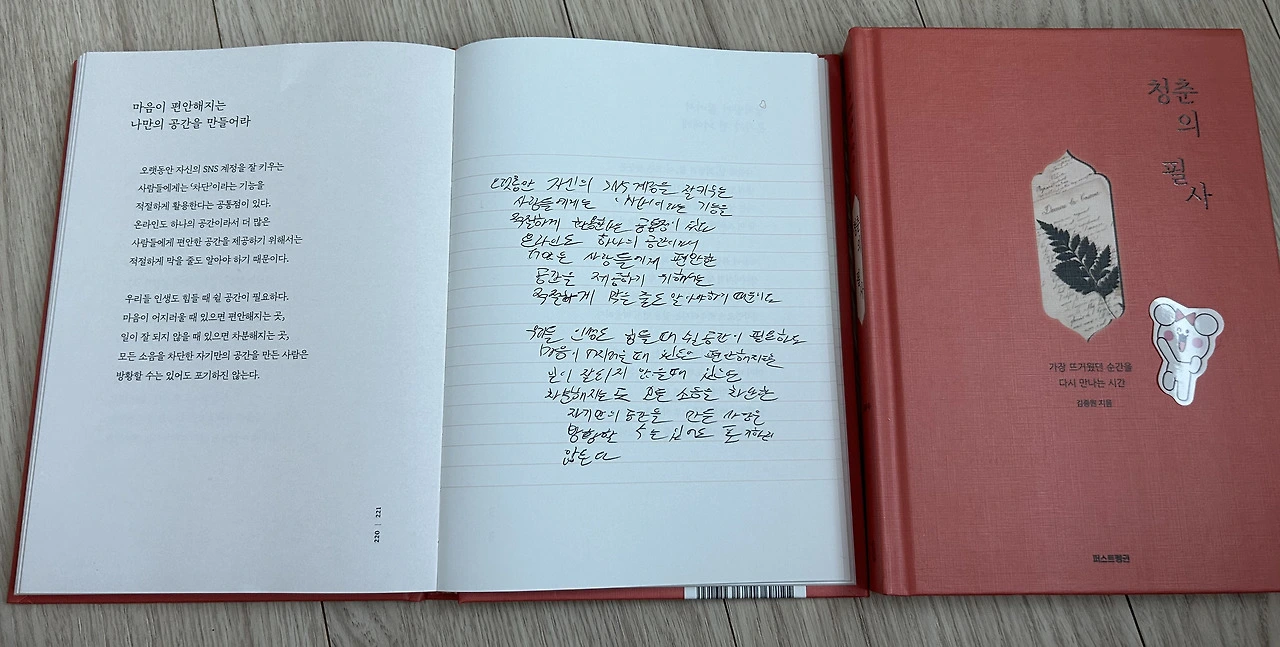 마음이 편안해지는
나만의 공간을 만들어라
오랫동안 자신의 SNS 계정을 잘 키우는
사람들에게는 '차단'이라는 기능을
적절하게 활용한다는 공통점이 있다.
온라인도 하나의 공간이라서 더 많은
사람들에게 편안한 공간을 제공하기 위해서는
적절하게 막을 줄도 알아야 하기 때문이다.
우리들 인생도 힘들 때 쉴 공간이 필요하다.
마음이 어지러울 때 있으면 편안해지는 곳,
일이 잘 되지 않을 때 있으면 차분해지는 곳,
모든 소음을 차단한 자기만의 공간을 만든 사람은
방황할 수는 있어도 포기하진 않는다.
220 | 221
오랫동안 자신의 SNS 계정을 잘 키우는
사람들에게는 '차단'이라는 기능을
적절하게 활용한다는 공통점이 있다
온라인도 하나의 공간이라서
더 많은 사람들에게 편안한
공간을 제공하기 위해서는
적절하게 막을 줄도 알아야 하기 때문이다
인생도 힘들 때 쉴 공간이 필요하다
마음이 어지러울 때 있으면 편안해지는
일이 잘 되지 않을 때 있으면
차분해지는 곳 모든 소음을 차단한
자기만의 공간을 만든 사람은
방황할 수는 있어도 포기하진
않는다
청춘의
필사
가장 뜨거웠던 순간을
다시 만나는 시간
김종원 지음
퍼스트펭귄